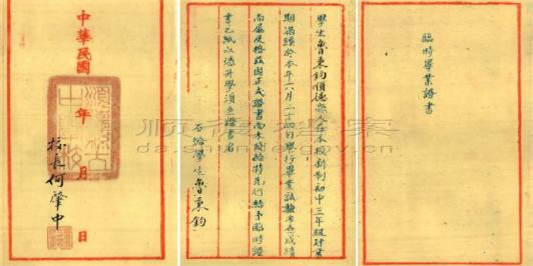 臨時畢業證書
學生魯東鈞順德縣人在本校新制初中三年級肄業
期滿經於本年六月二十四日舉行畢業試驗考查成績
尚屬及格茲因正式證書尚未發給特先行給予臨時證
書乙紙以憑升學須至證書者
右給學生魯東鈞
中華民國 年 月 日
校長何肇中
da.shunde.gov.cn